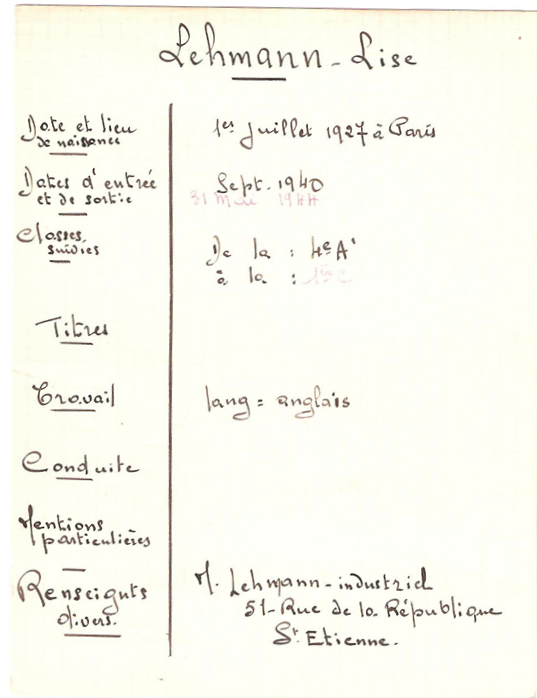 Lehmann - Lise
Date et lieu
de naissance
1er Juillet 1927 à Paris
Dates d'entrée
et de sortie
Sept. 1940
31 Mai 1944
Classes
suivies
De la : 4e A'
à la : 1ère C
Titres
Travail
lang = anglais
Conduite
Mentions
particulières
Renseignts
divers.
M. Lehmann - industriel
51 - Rue de la République
St Etienne.